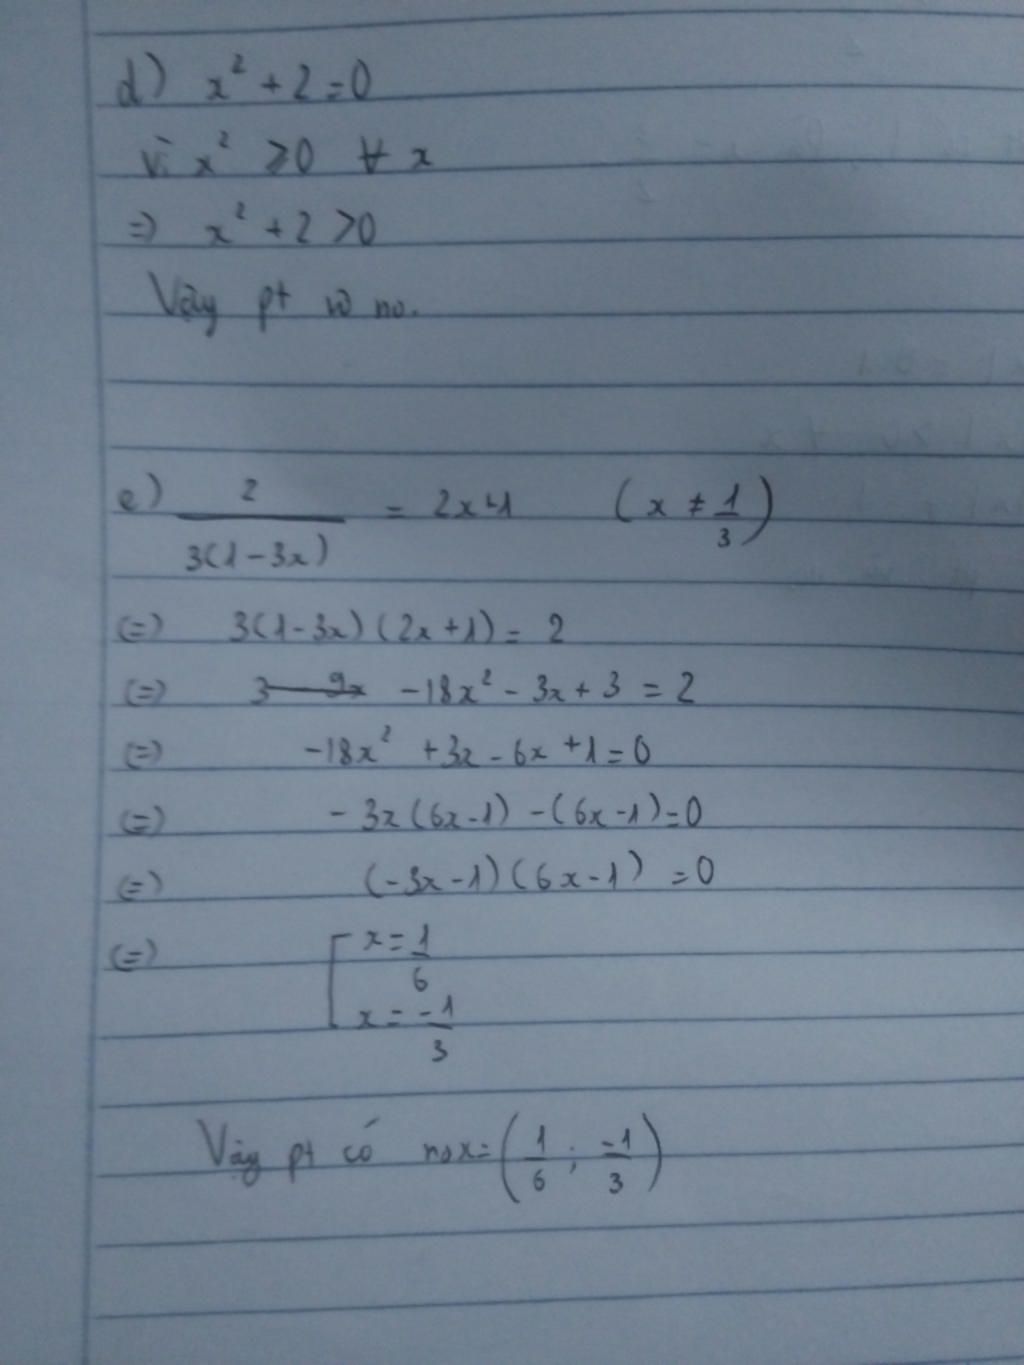 d) x² + 2 = 0
vì x² ≥ 0 ∀ x
=> x² + 2 > 0
Vậy pt vô no.
e) 2/(3(1-3x)) = 2x+1 (x ≠ 1/3)
(=) 3(1-3x)(2x+1) = 2
(=) -18x² - 3x + 3 = 2
(=) -18x² + 3x - 6x + 1 = 0
(=) -3x(6x-1) - (6x-1) = 0
(=) (-3x-1)(6x-1) = 0
(=) [ x = 1/6
x = -1/3
Vậy pt có no x = (1/6 ; -1/3)